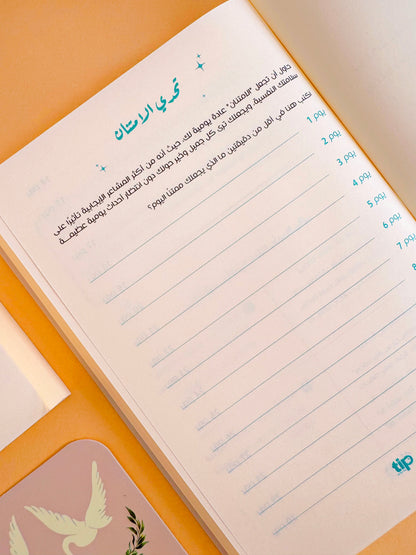 تحدي الامتنان
حاول أن تجعل "الامتنان" عادة يومية لك، حيث أنه من أكثر المشاعر الإيجابية تأثيرًا على
سلامتك النفسية، ويجعلك ترى كل جميل وخير حولك دون انتظار أحداث يومية عظيمة
اكتب هنا في أقل من دقيقتين ما الذي يجعلك ممتنًا اليوم؟
يوم 1
يوم 2
يوم 3
يوم 4
يوم 5
يوم 6
يوم 7
8
tip